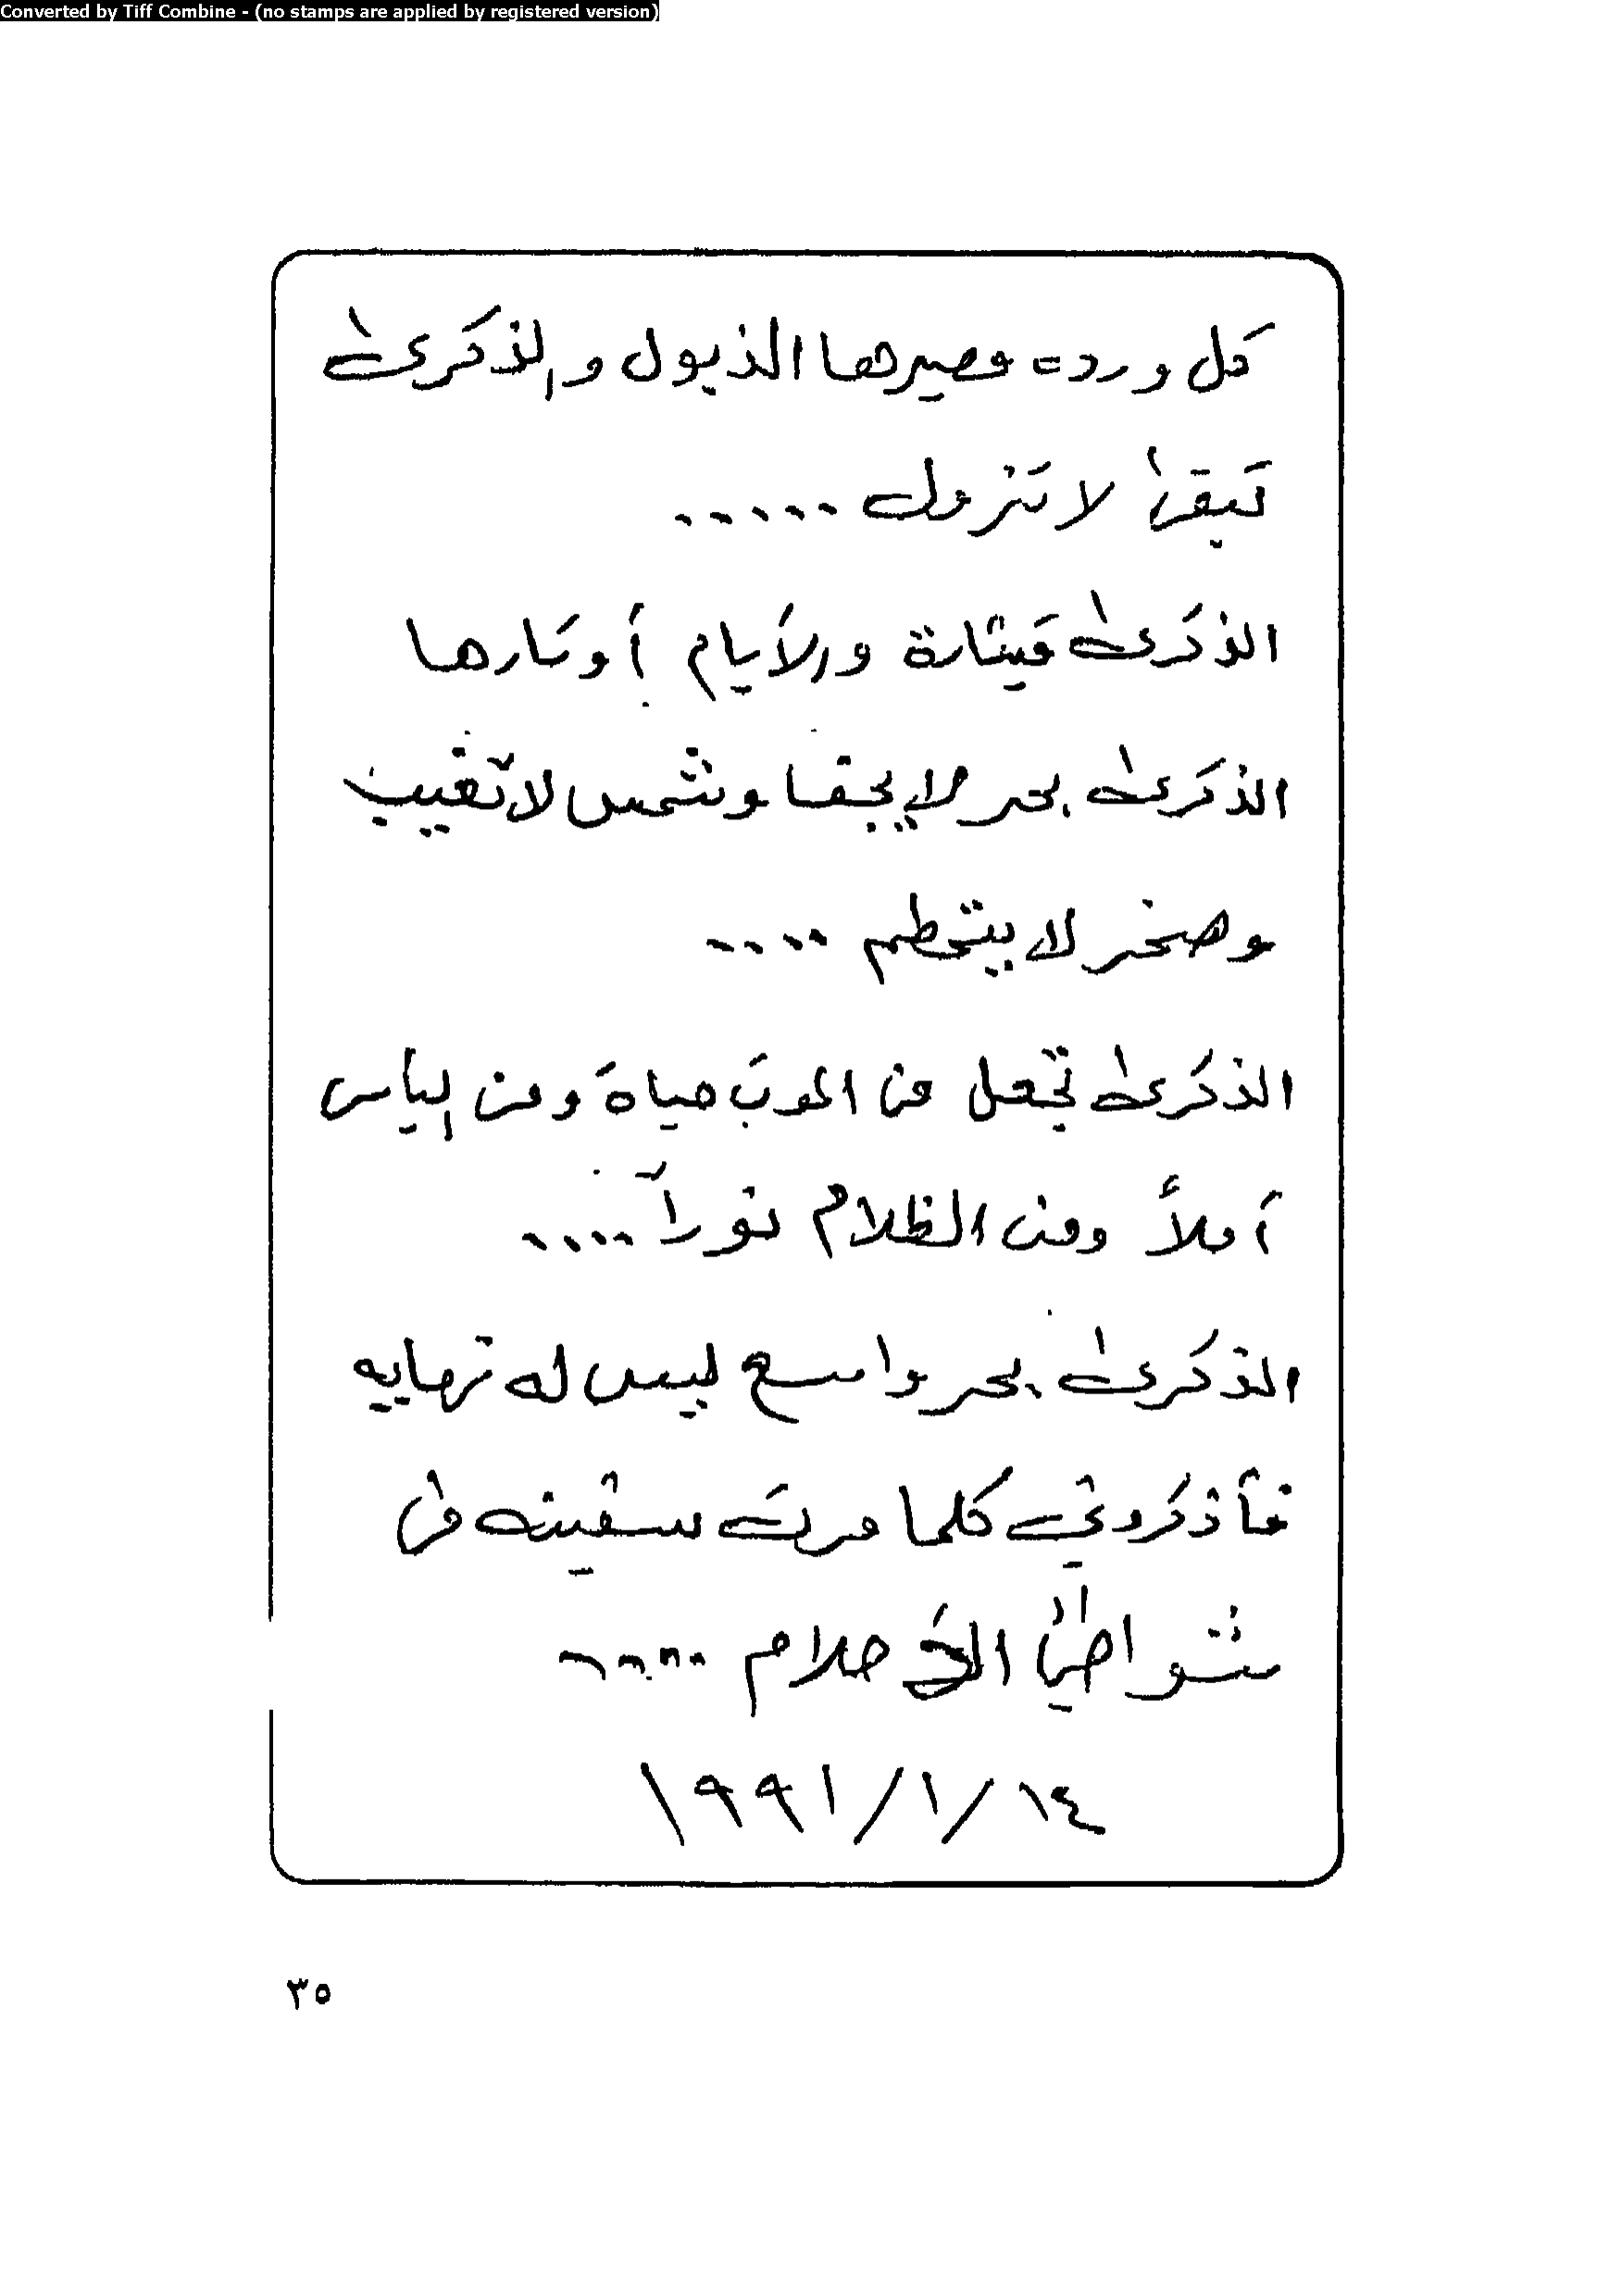 Converted by Tiff Combine - (no stamps are applied by registered version)
كل وردة مصيرها الذبول والذكرى
تبقى لا تزول .....
الذكرى قيثارة والأيام أوتارها
الذكرى بحر لا يجفا وشمس لا تغيب
وصخر لا يتحطم ....
الذكرى تجعل من الموت حياة ومن اليأس
أملاً ومن الظلام نوراً ....
الذكرى بحر واسع ليس له نهايه
فأذكروني كلما مرت سفينه في
شواطئ الأحلام ....
١٩٩١/١/١٤
٣٥